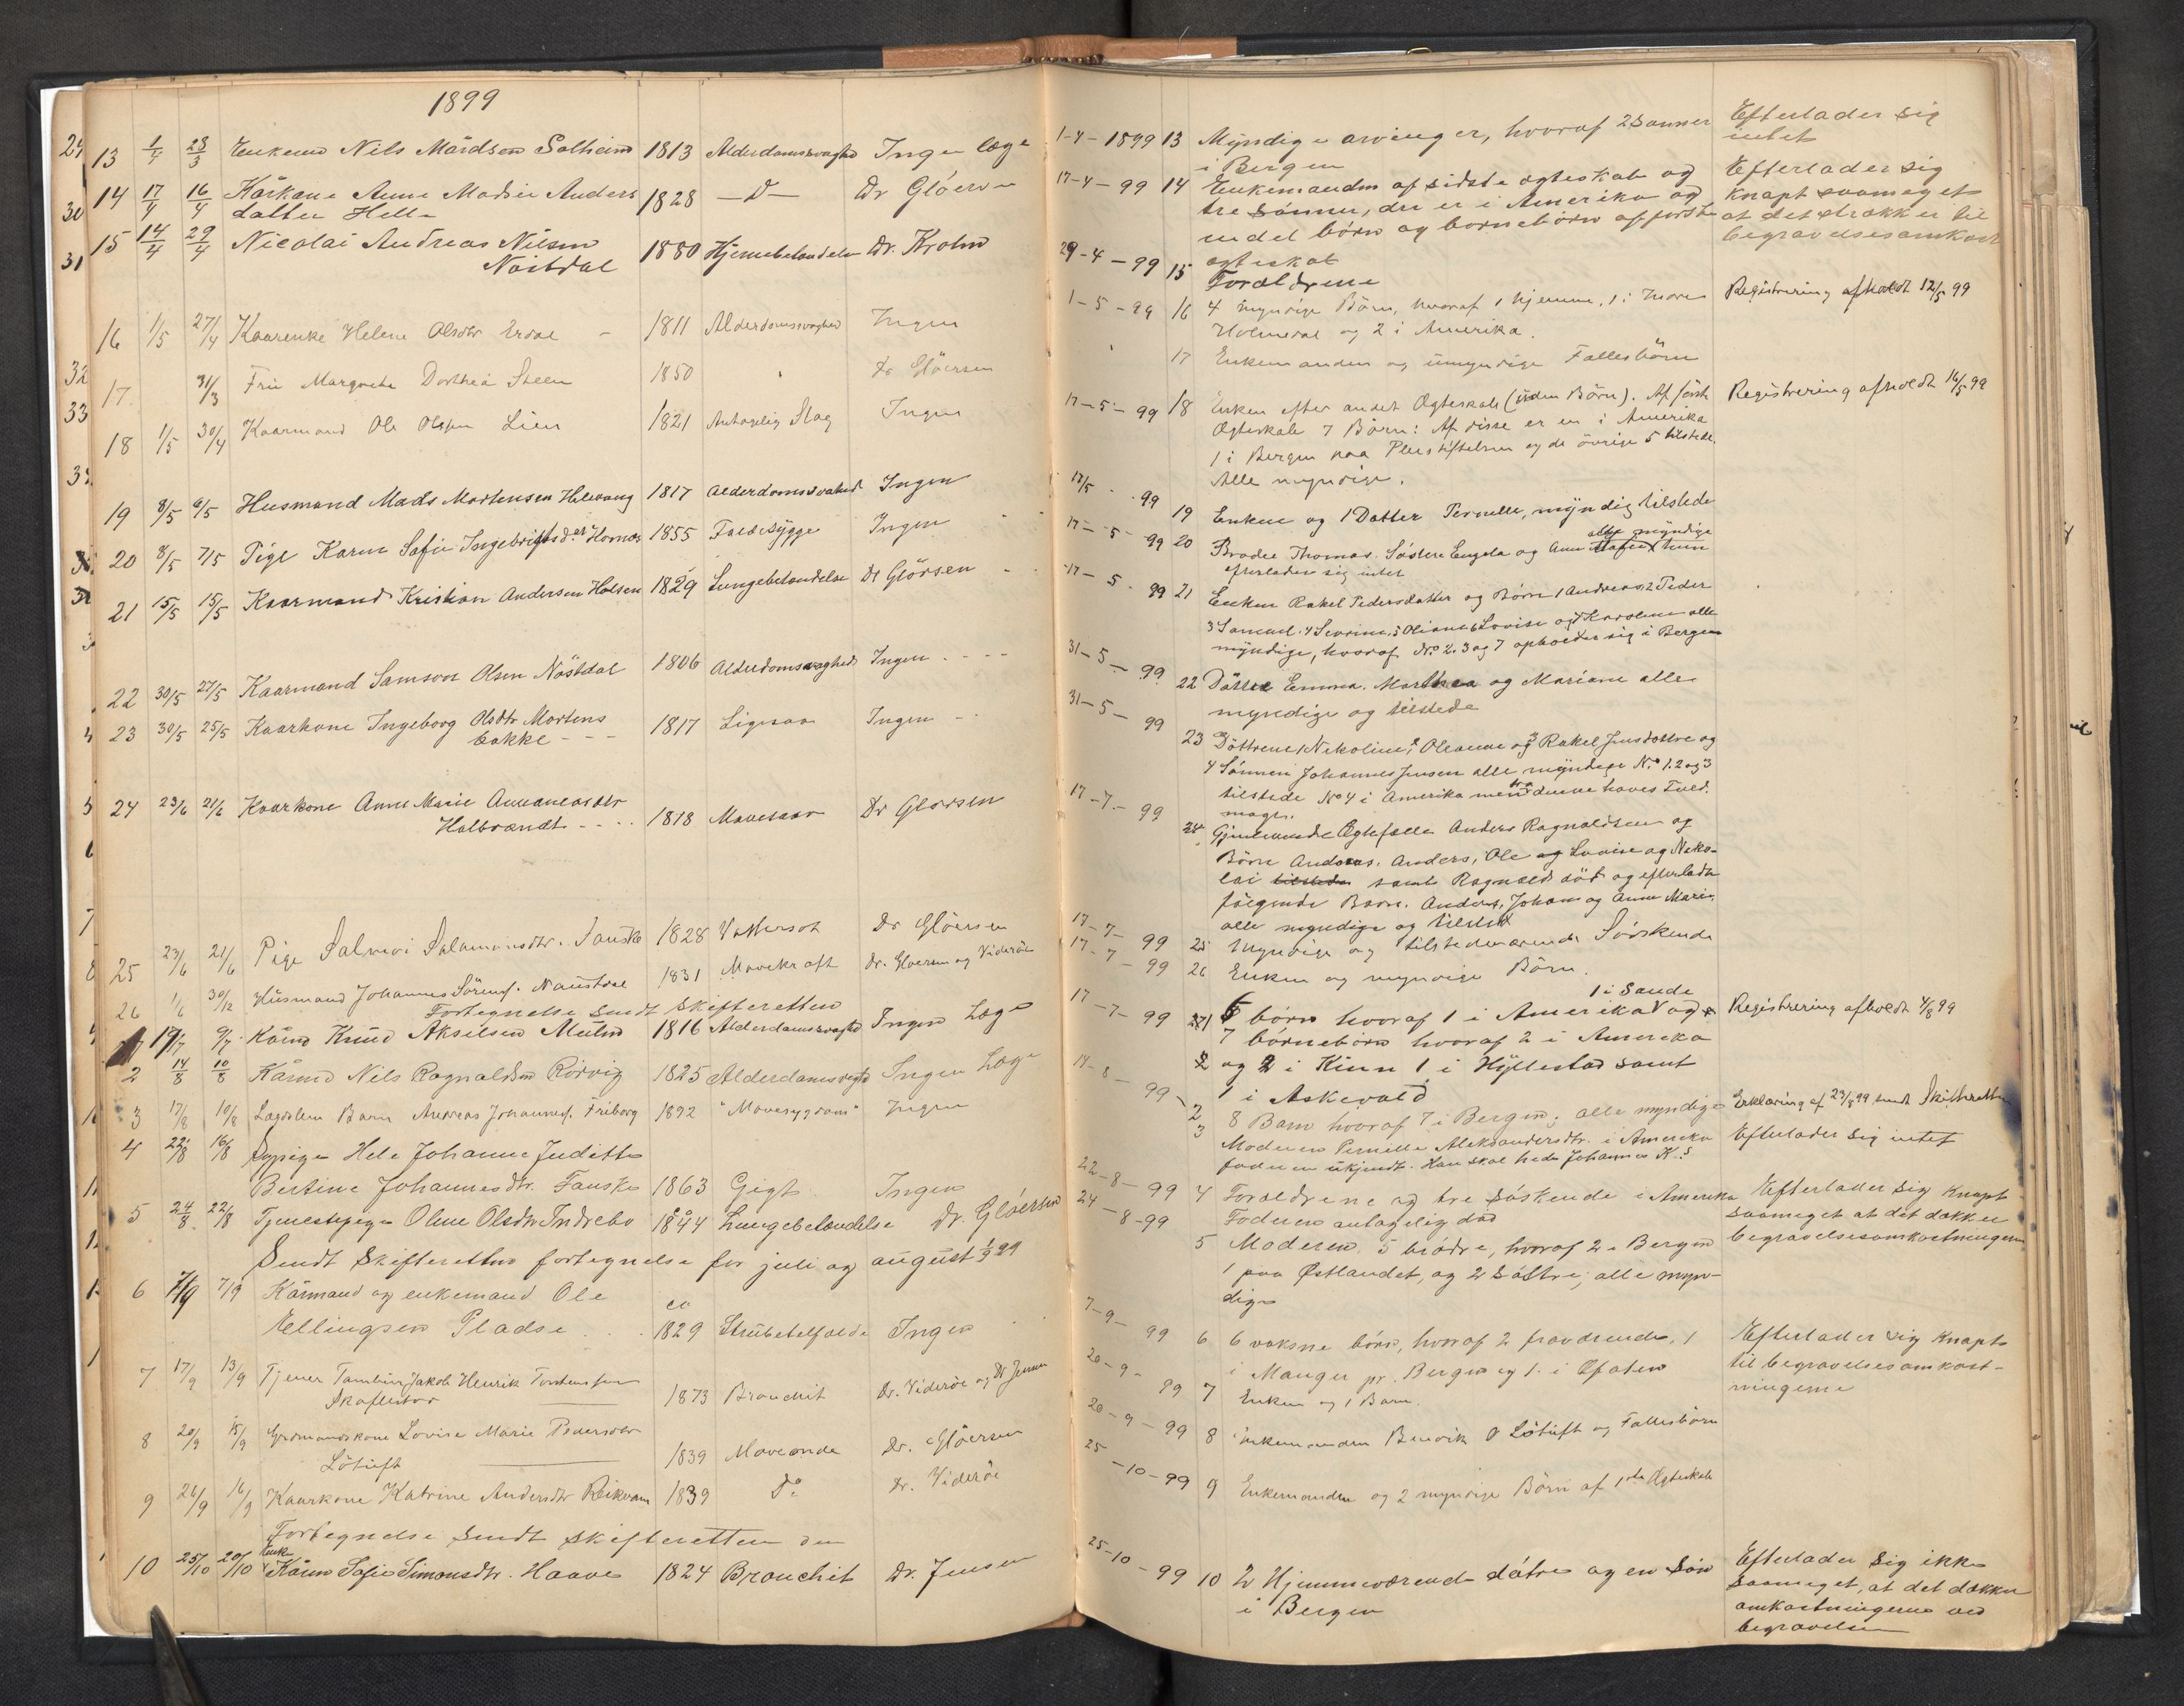 1899
13 1/4 28/3 Enkemd Nils Mårdsen Solheim 1813 Alderdomssvaghed Ingen læge
14 17/4 16/4 Kårkone Anne Marie Anders 1828 —D— Dr Gløersen
datter Helle
15 14/4 29/4 Nicolai Andreas Nilsen 1880 Hjernebetændelse Dr. Krohn
Nøstdal
16 1/5 27/4 Kaarenke Helene Olsdtr Erdal 1811 Alderdomssvaghed Ingen
17 31/3 Fru Margrete Dorthea Steen 1850 Dr Gløersen
18 1/5 30/4 Kaarmand Ole Olsen Lien 1821 Antagelig Slag Ingen
19 8/5 6/5 Husmand Mads Mortensen Helevang 1817 Alderdomssvakhed Ingen
20 8/5 7/5 Pige Karen Sofie Ingebrigtsdtr Hornæs 1855 Faldesygge Ingen
21 15/5 15/5 Kaarmand Kristian Andersen Holsen 1829 Lungebetændelse Dr Glörsen
22 30/5 27/5 Kaarmand Samson Olsen Nöstdal 1806 Alderdomssvaghed Ingen
23 30/5 25/5 Kaarkone Ingeborg Olsdtr Mortens 1817 Ligesaa Ingen
bakke
24 23/6 21/6 Kaarkone Anne Marie Annaniasdtr
Halbrændt 1818 Mavesaar Dr Glørsen
25 23/6 21/6 Pige Salmoi Salamonsdtr. Fauske 1828 Vattersot Dr Gløersen
26 1/6 30/12 Husmand Johannes Sörens. Naustdal 1831 Mavekræft Dr. Gloersen og Viderøe
Fortegnelse sendt skifteretten
1 17/7 9/7 Kårmd Knud Akselsen Mulen 1816 Alderdomssvaghed Ingen Læge
2 14/8 10/8 Kårmd Nils Ragnaldsen Rørvig 1825 Alderdomssvaghed Ingen Læge
3 17/8 10/8 Lægdslem Barn Andreas Johannes. Friborg 1892 "Mavesygdom" Ingen
4 22/8 16/8 Sypige Hele Johanne Juditte
Bertine Johannesdtr. Fauske 1863 Gigt Ingen
5 24/8 22/8 Tjenestepige Oline Olsdtr Indrebø 1844 Lungebetændelse Dr. Gløersen
Sendt Skifteretten fortegnelse for juli og august 1/9 99
6 7/9 7/9 Kårmand og enkemand Ole
Ellingsen Pladse ca 1829 Strubetilfælde Ingen
7 17/9 13/9 Tjener Tambur Jakob Henrik Torstensen
Skaflestad 1873 Bronchit Dr. Viderøe og Dr Jensen
8 20/9 15/9 Grdmandskone Lovise Marie Pedersdtr
Løtuft 1839 Maveonde Dr. Gløersen
9 26/9 16/9 Kaarkone Katrine Andersdtr Reikvam 1839 Do Dr. Viderøe
Fortegnelse sendt skifteretten den
10 25/10 20/10 Enk Kårm Sofie Simonsdtr. Haave 1824 Bronchit Dr. Jensen
1-4-1899 13 Myndige arvinger, hvoraf 2 sønner Efterlader sig
i Bergen intet
17-4-99 14 Enkemanden af sidste ægteskab og Efterlader sig
tre sønner, der er i Amerika og knapt saameget
endel børn og børnebørn af første at det strækker til
ægteskab begravelsesomkost
29-4-99 15 Forældrene
1-5-99 16 4 myndige Börn, hvoraf 1 hjemme, 1 i Indre Registrering afholdt 12/5 99
Holmedal og 2 i Amerika.
17 Enkemanden og umyndige Fællesbörn
17-5-99 18 Enken efter andet Ægteskab (uden Börn). Af første Registrering afholdt 16/5 99
Ægteskab 7 Börn: Af disse er en i Amerika
1 i Bergen paa Pleiestiftelsen og de övrige 5 tilstede.
Alle myndige.
17/5 99 19 Enken og 1 Datter Pernille, myndig tilstede
17-5-99 20 Broder Thomas. Söstre Engela og Anne alle myndige hun
efterlader sig intet
17-5-99 21 Enken Rakel Pedersdatter og Börn 1 Andreas, 2 Peder
3 Samuel. 4 Severine. 5 Oliane 6 Lovise og 7 Karoline alle
myndige, hvoraf No 2. 3 og 7 opholder sig i Bergen
31-5-99 22 Døttre Emma. Marthea og Mariane alle
myndige og tilstede
31-5-99 23 Döttrene 1 Nikoline, 2 Oleanne og 3 Rakel Jensdöttre og
4 Sönnen Johannes Jensen alle myndige No 1. 2 og 3
tilstede No 4 i Amerika men fra denne haves Fuld.
magt.
17-7-99 24 Gjenlevende Ægtefælle Anders Ragnaldsen og
Börn Andreas. Anders, Ole og Lovise og Niko-
lai tilstede samt Ragnald död og efterladt
fölgende Barn. Anders, Johan og Anne Marie.
alle myndige og tilstede
17-7-99 25 Myndige og tilstedeværende Söskende
17-7-99 26 Enken og myndige Börn.
1 i Sande
17-7-99 1 6 børn hvoraf 1 i Amerika og Registrering afholdt 4/8 99
7 børnebørn hvoraf 2 i Amerika
og 2 i Kinn 1 i Hyllestad samt
1 i Askevold
14-8-99 2 8 Barn hvoraf 7 i Bergen; alle myndige Erklæring af 23/8 99 sendt Skifteretten
3 Moderen Pernille Aleksandersdtr. i Amerika Efterlader sig intet
faderen ukjendt. Han skal hede Johannes K.
22-8-99 4 Forældrene og tre søskende i Amerika Efterlader sig knapt
Faderen antagelig død saameget at det dækker
24-8-99 5 Moderen, 5 brødre, hvoraf 2 i Bergen begravelsesomkostningerne
1 paa Østlandet, og 2 søstre; alle myn-
dige
7-9-99 6 6 voksne børn, hvoraf 2 fraværende, 1 Efterlader sig knapt
i Manger pr. Bergen og 1 i Ofoten til begravelsesomkost-
20-9-99 7 Enken og 1 Barn. ningerne
20-9-99 8 Enkemanden Benrik O Løtuft og Fællesbörn
25-10-99 9 Enkemanden og 2 myndige Börn af 1ste Ægteskab
25-10-99 10 2 Hjemmeværende døtre og en søn Efterlader sig ikke
i Bergen saameget, at det dækker
omkostningerne ved
begravelsen